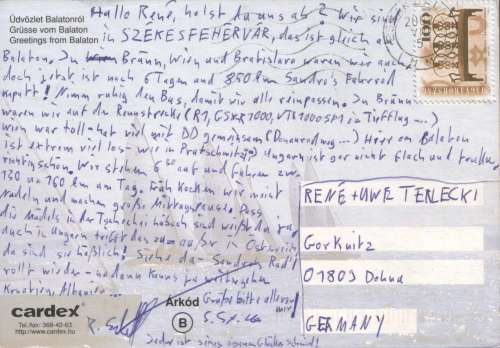 Üdvözlet Balatonról
Grüsse vom Balaton
Greetings from Balaton
Hallo René, holst du uns ab? Wir sind
in SZEKESFEHERVAR, das ist gleich am
Balaton. In Brünn, Wien und Bratislava waren wir auch
doch jetzt ist nach 6 Tagen und 850 km Sandro's Fahrrad
kaputt! Nimm ruhig den Bus, damit wir alle reinpassen. In Brünn
waren wir auf der Rennstrecke (R1, GSXR1000, VTR1000SP1 im Tiefflug ...)
Wien war toll - hat viel mit DD gemeinsam (Donauradweg ...) Hier am Balaton
ist extrem viel los - wie in Pratschwitz Ungarn ist gar nicht flach und trocken
richtig schön. Wir stehen 6 auf und fahren zw.
130 u 160 km am Tag. Früh Kochen wir meist
Nudeln und machen große Mittagspause. Dass
die Mädels in der Tschechei hübsch sind weißt du ja
doch in Ungarn trifft das zu in Österreich
da sind sie häßlich! Siehe da - Sandros Rad
rollt wieder - na dann kanns ja weitergehen
Kroatien, Albanien ...
Grüße bitte alle von
mir!
Jeder ist seines eigenen Glückes Schmied!
RENÉ + UWE TERLECKI
Gorknitz
01809 Dohna
GERMANY
cardex
Tel./fax: 368-42-63
http://www.cardex.hu
Árkód
B
100
MAGYARORSZÁG